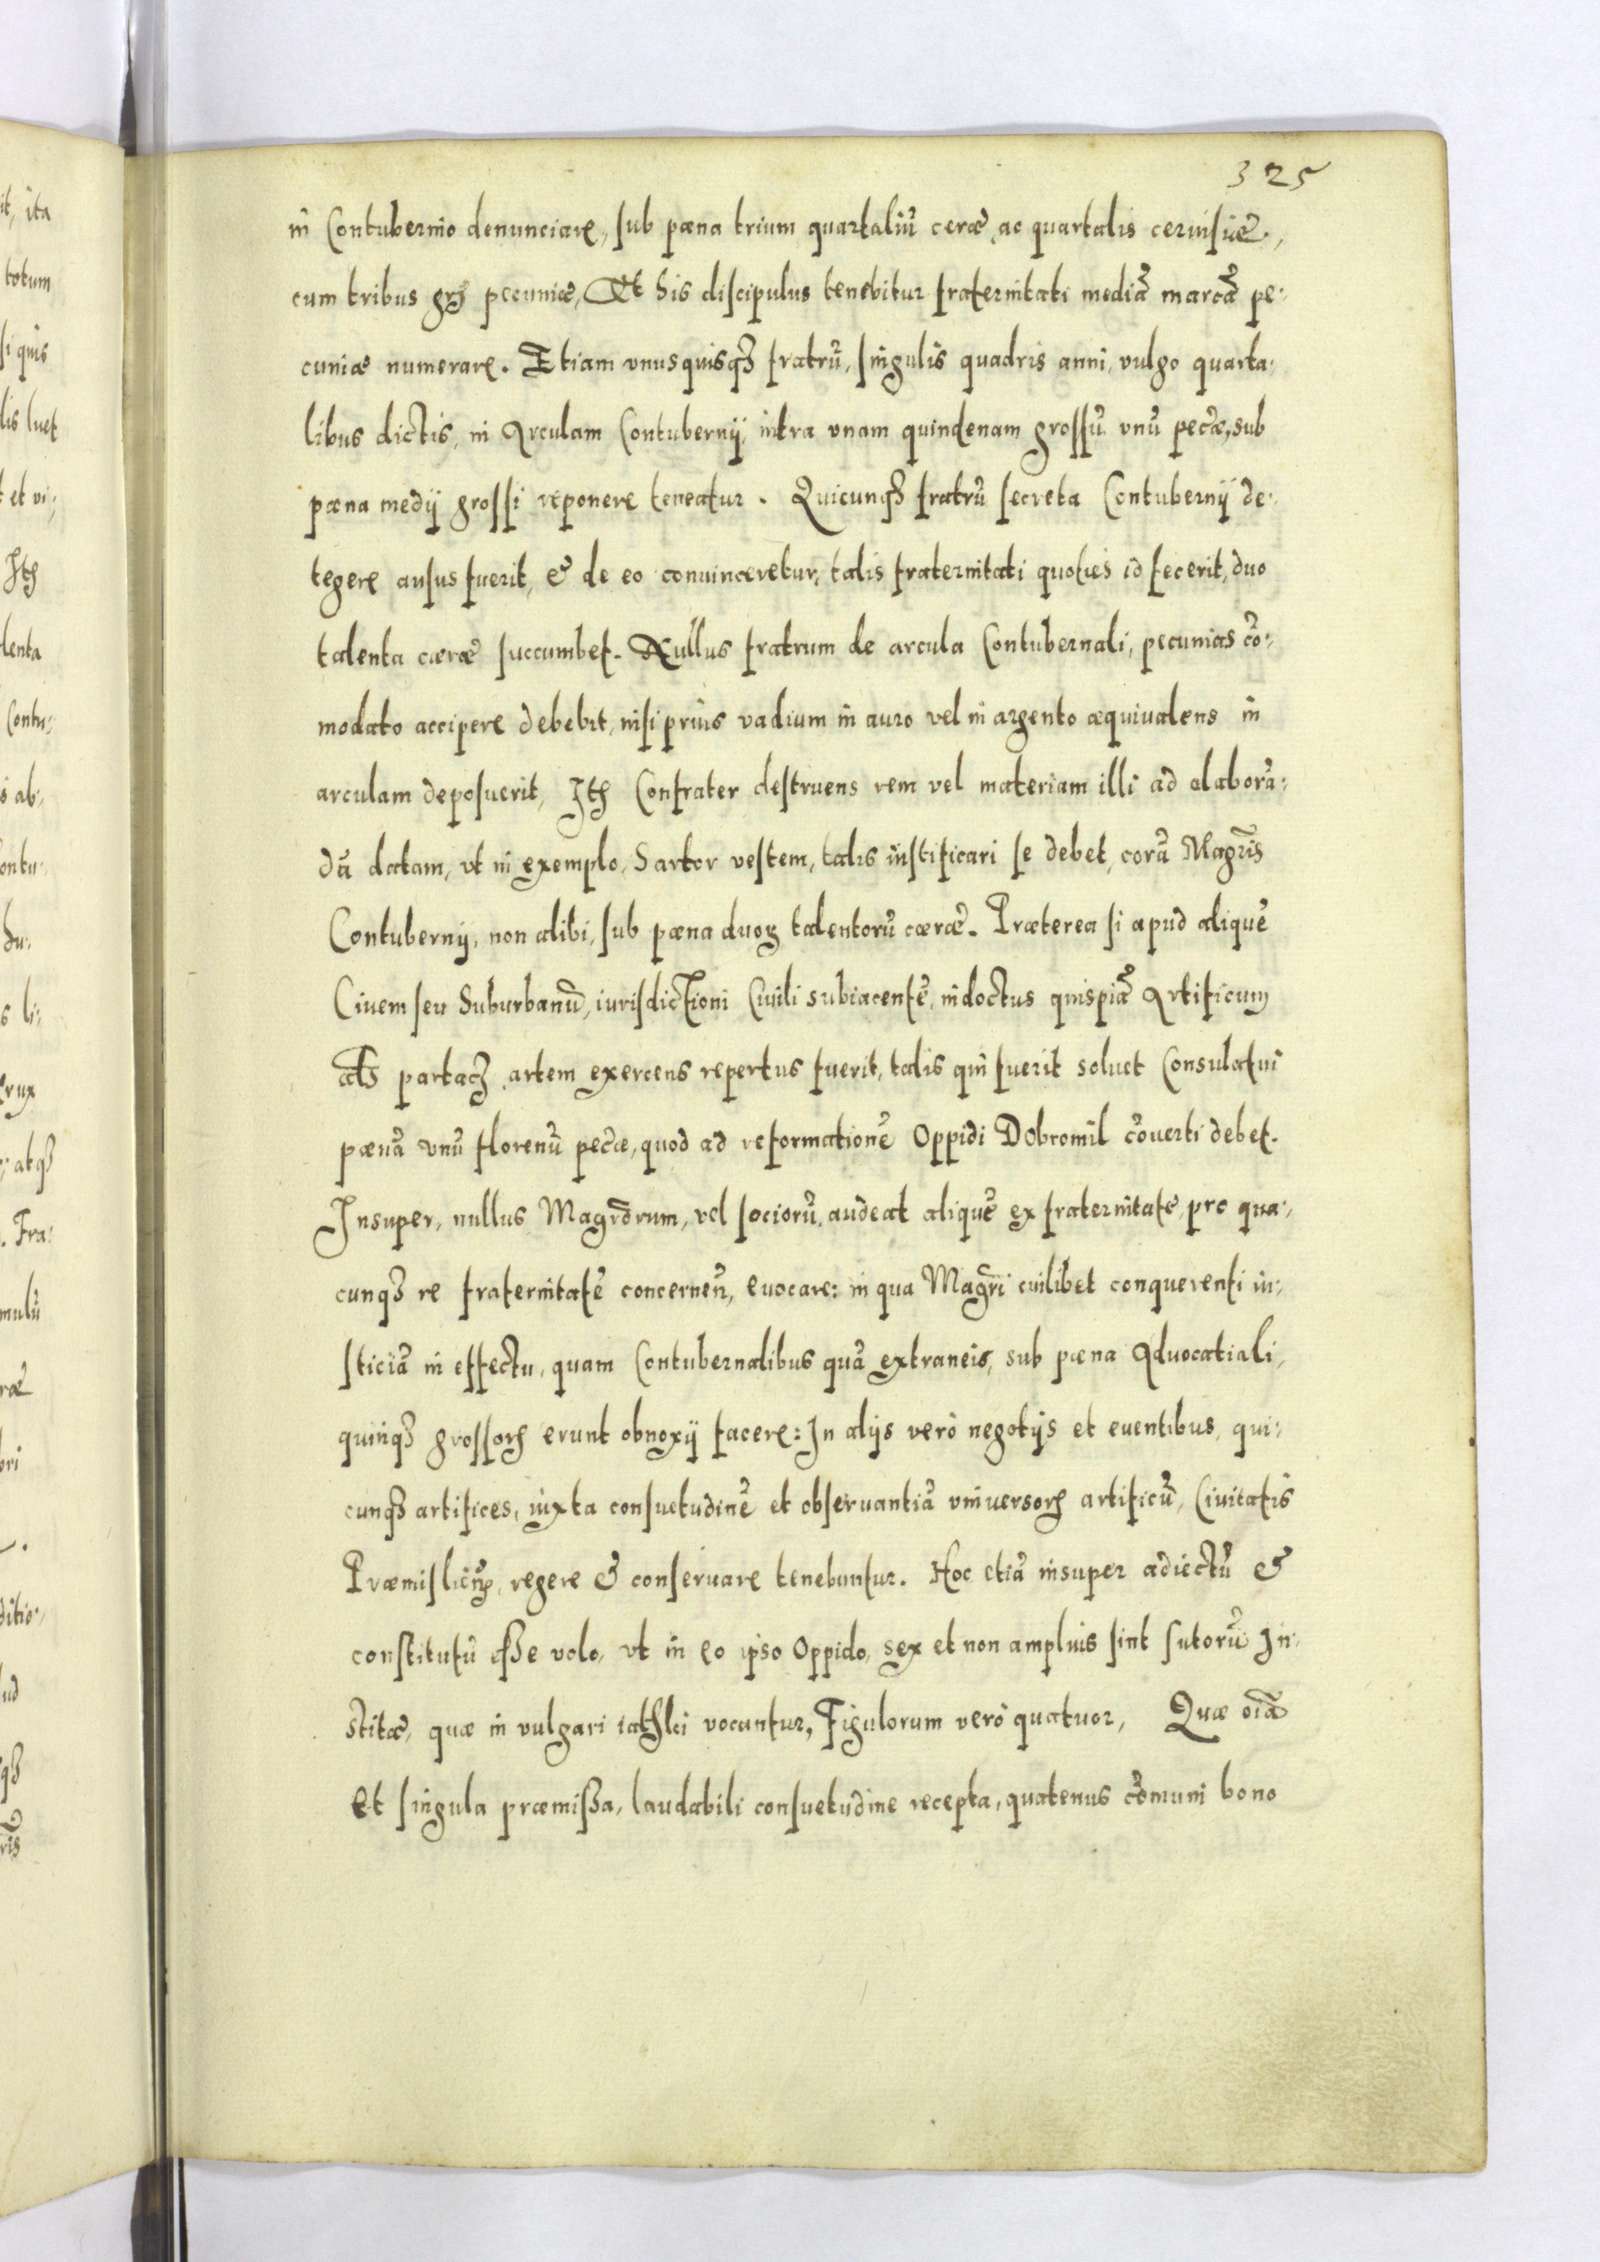 325
in Contubernio denunciare, sub pæna trium quartaliũ ceræ, ac quartalis cervisiæ,
cum tribus gr̃ pecuniæ, Et his discipulus tenebitur fraternitati mediã marcã pe:
cuniæ numerare. Etiam vnusquisq3 fratrũ, singulis quadris anni, vulgo quarta:
libus dictis, in Arculam Contubernij, intra vnam quindenam grossũ vnũ pec̃æ, sub
pæna medij grossi reponere teneatur. Quicunq3 fratrũ secreta Contubernij de:
tegere ausus fuerit, & de eo conuinceretur, talis fraternitati quoties id fecerit, duo
talenta cæræ succumbet. Nullus fratrum de arcula Contubernali, pecunias cõ:
modato accipere debebit, nisi prius vadium in auro vel in argento æquivalens in
arculam deposuerit, Itꝫ Confrater destruens rem vel materiam illi ad elaborã:
dũ datam, vt in exemplo, Sartor vestem, talis iustificari se debet, corã Magrĩs
Contubernij, non alibi, sub pæna duoꝝ talentorũ cæræ. Præterea si apud aliquẽ
Ciuem seu Suburbanũ, iurisdictioni Ciuili subiacentẽ, indoctus quispiã Artificum
als partacz artem exercens repertus fuerit, talis qui fuerit soluet Consulatui
pænã vnũ florenũ pec̃æ, quod ad reformationẽ Oppidi Dobromil cõuerti debet.
Insuper, nullus Magrõrum, vel sociorũ, audeat aliquẽ ex fraternitate, pro qua:
cunq3 re fraternitatẽ concerneñ, euocare: in qua Magrĩ cuilibet conquerenti iu:
sticiã in effectu, quam Contubernalibus quã extraneis, sub pæna Aduocatiali,
quinq3 grossoꝝ erunt obnoxij facere: In alijs verò negotijs et euentibus, qui:
cunq3 artifices, iuxta consuetudinẽ et obseruantiã vniuersoꝝ artificũ, Ciuitatis
Præmislieñ, regere & conseruare tenebuntur. Hoc etiã insuper adiectũ &
constitutũ esse volo, vt in eo ipso Oppido, sex et non amplius sint sutorũ In:
stitæ, quæ in vulgari iathki vocantur, Figulorum verò quatuor, Quæ oĩa
Et singula præmissa, laudabili consuetudine recepta, quatenus cõmuni bono